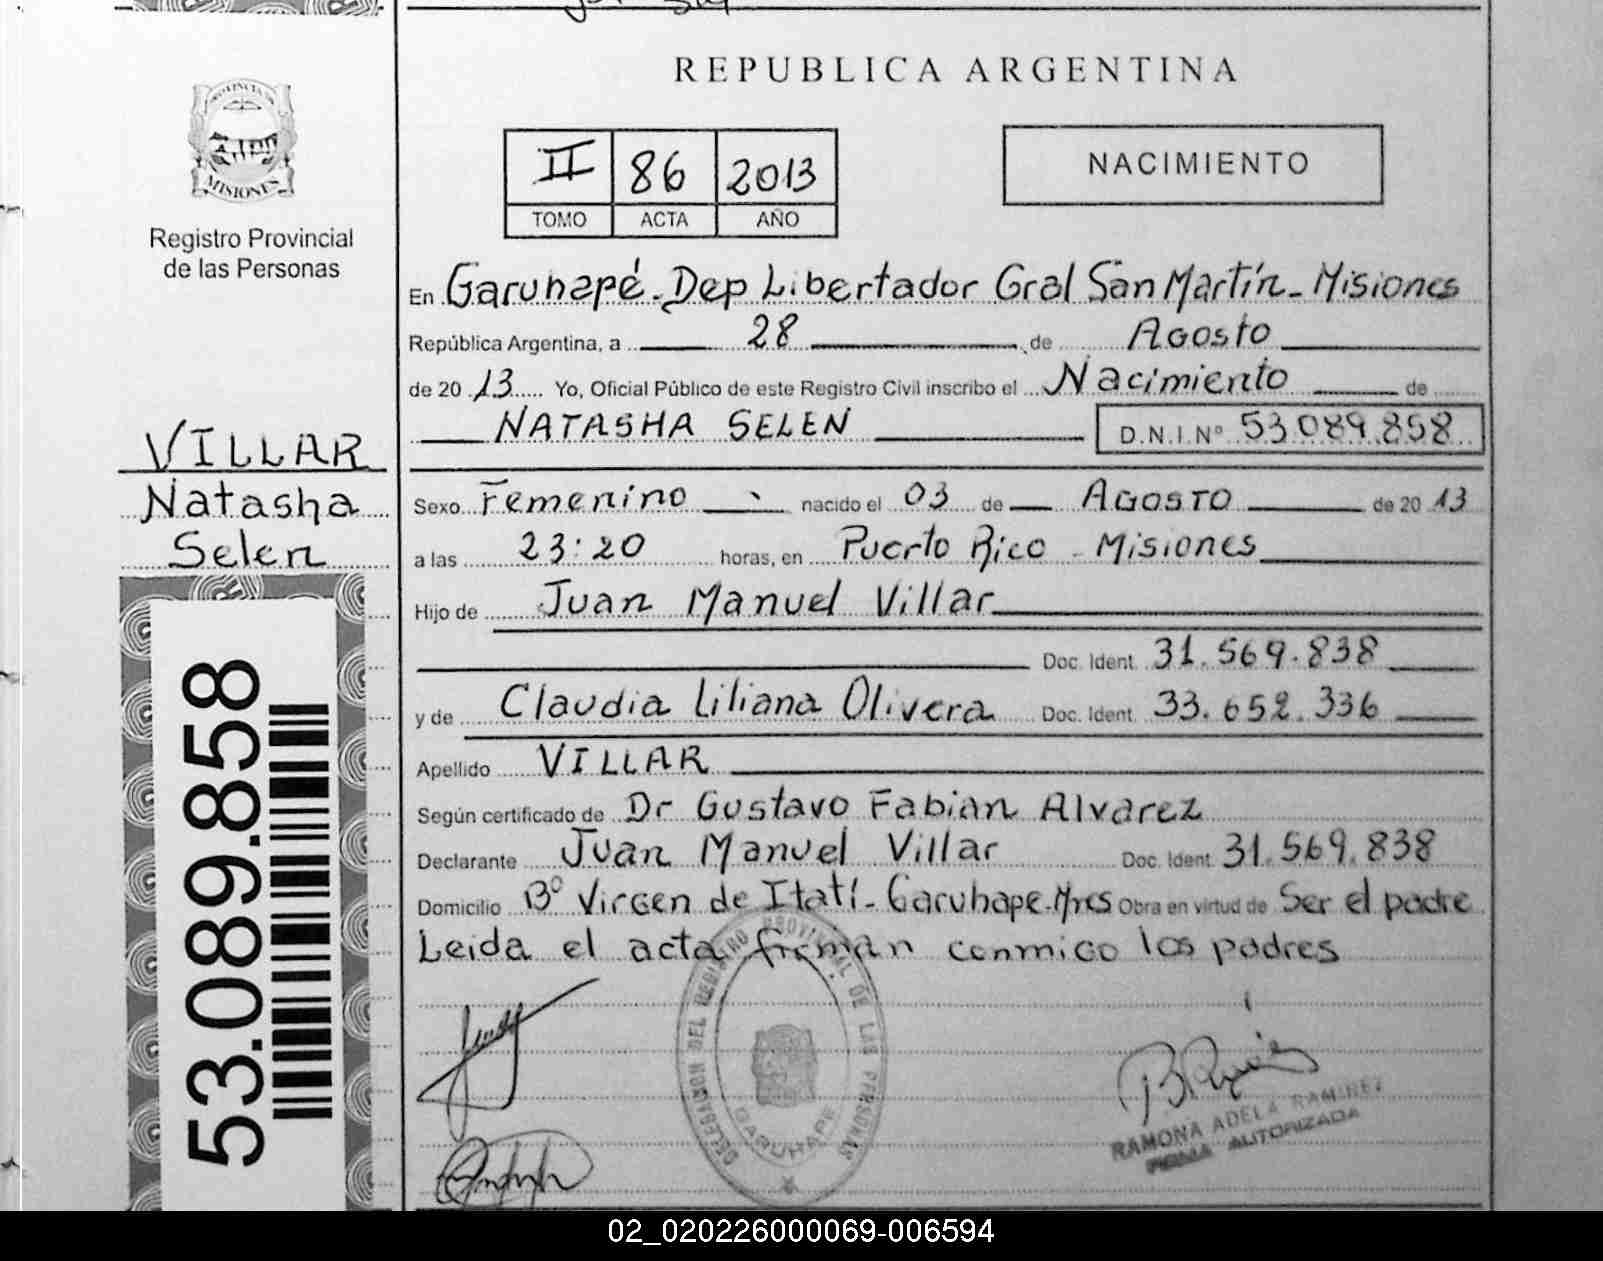 REPUBLICA ARGENTINA
PROVINCIA DE
MISIONES
Registro Provincial
de las Personas
II 86 2013
TOMO ACTA AÑO
NACIMIENTO
En Garuhapé - Dep Libertador Gral San Martín - Misiones
República Argentina, a 28 de Agosto
de 2013 Yo, Oficial Público de este Registro Civil inscribo el Nacimiento de
NATASHA SELEN D.N.I.Nº 53.089.858
VILLAR
Natasha
Selen
53.089.858
Sexo Femenino nacido el 03 de Agosto de 2013
a las 23:20 horas, en Puerto Rico - Misiones
Hijo de Juan Manuel Villar
Doc. Ident. 31.569.838
y de Claudia Liliana Olivera Doc. Ident. 33.652.336
Apellido VILLAR
Según certificado de Dr Gustavo Fabian Alvarez
Declarante Juan Manuel Villar Doc. Ident. 31.569.838
Domicilio Bº Virgen de Itatí - Garuhape - Mnes Obra en virtud de Ser el padre
Leida el acta firman conmigo los padres
DELEGACION DEL REGISTRO PROVINCIAL DE LAS PERSONAS
GARUHAPE
RAMONA ADELA RAMIREZ
FIRMA AUTORIZADA
02_020226000069-006594